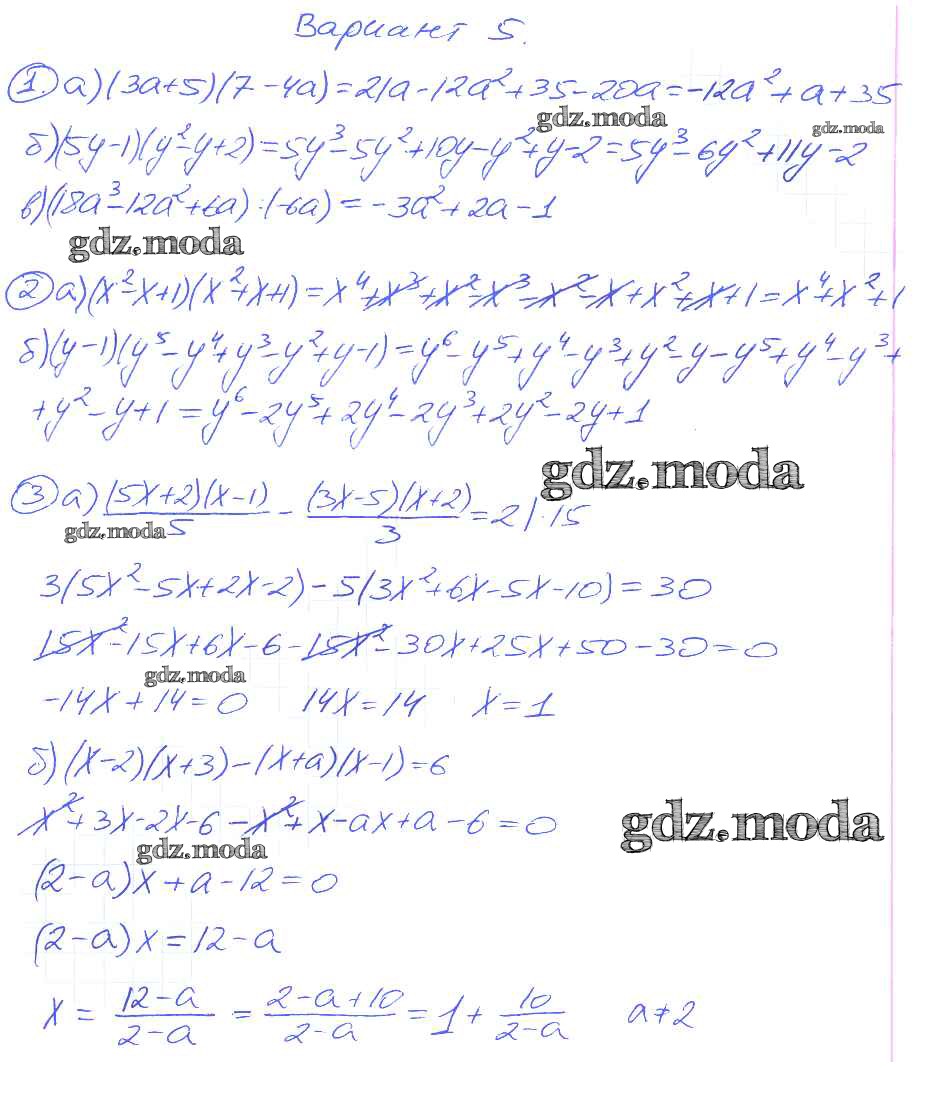 Вариант 5.
① а) (3a+5)(7-4a)=21a-12a²+35-20a=-12a²+a+35
gdz.moda gdz.moda
б) (5y-1)(y²-y+2)=5y³-5y²+10y-y²+y-2=5y³-6y²+11y-2
в) (18a³-12a²+6a):(-6a)=-3a²+2a-1
gdz.moda
② а) (x²-x+1)(x²+x+1)=x⁴+x³+x²-x³-x²-x+x²+x+1=x⁴+x²+1
б) (y-1)(y⁵-y⁴+y³-y²+y-1)=y⁶-y⁵+y⁴-y³+y²-y-y⁵+y⁴-y³+
+y²-y+1=y⁶-2y⁵+2y⁴-2y³+2y²-2y+1
gdz.moda
③ а) (5x+2)(x-1)/5 - (3x-5)(x+2)/3 = 2 |·15
gdz.moda
3(5x²-5x+2x-2)-5(3x²+6x-5x-10)=30
15x²-15x+6x-6-15x²-30x+25x+50-30=0
gdz.moda
-14x+14=0 14x=14 x=1
б) (x-2)(x+3)-(x+a)(x-1)=6
x²+3x-2x-6-x²+x-ax+a-6=0
gdz.moda
gdz.moda
(2-a)x+a-12=0
(2-a)x=12-a
x = (12-a)/(2-a) = (2-a+10)/(2-a) = 1 + 10/(2-a) a≠2